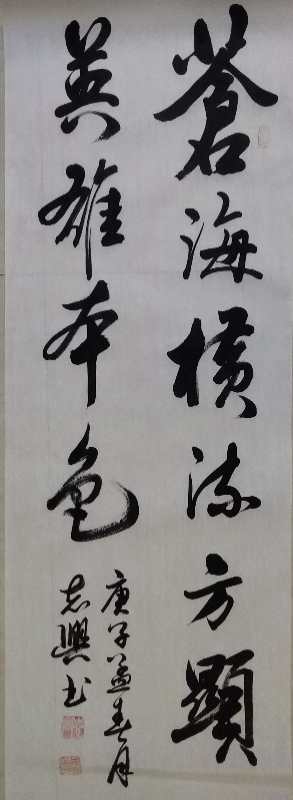 蒼海横流方顯
英雄本色
庚子孟春月
志興书